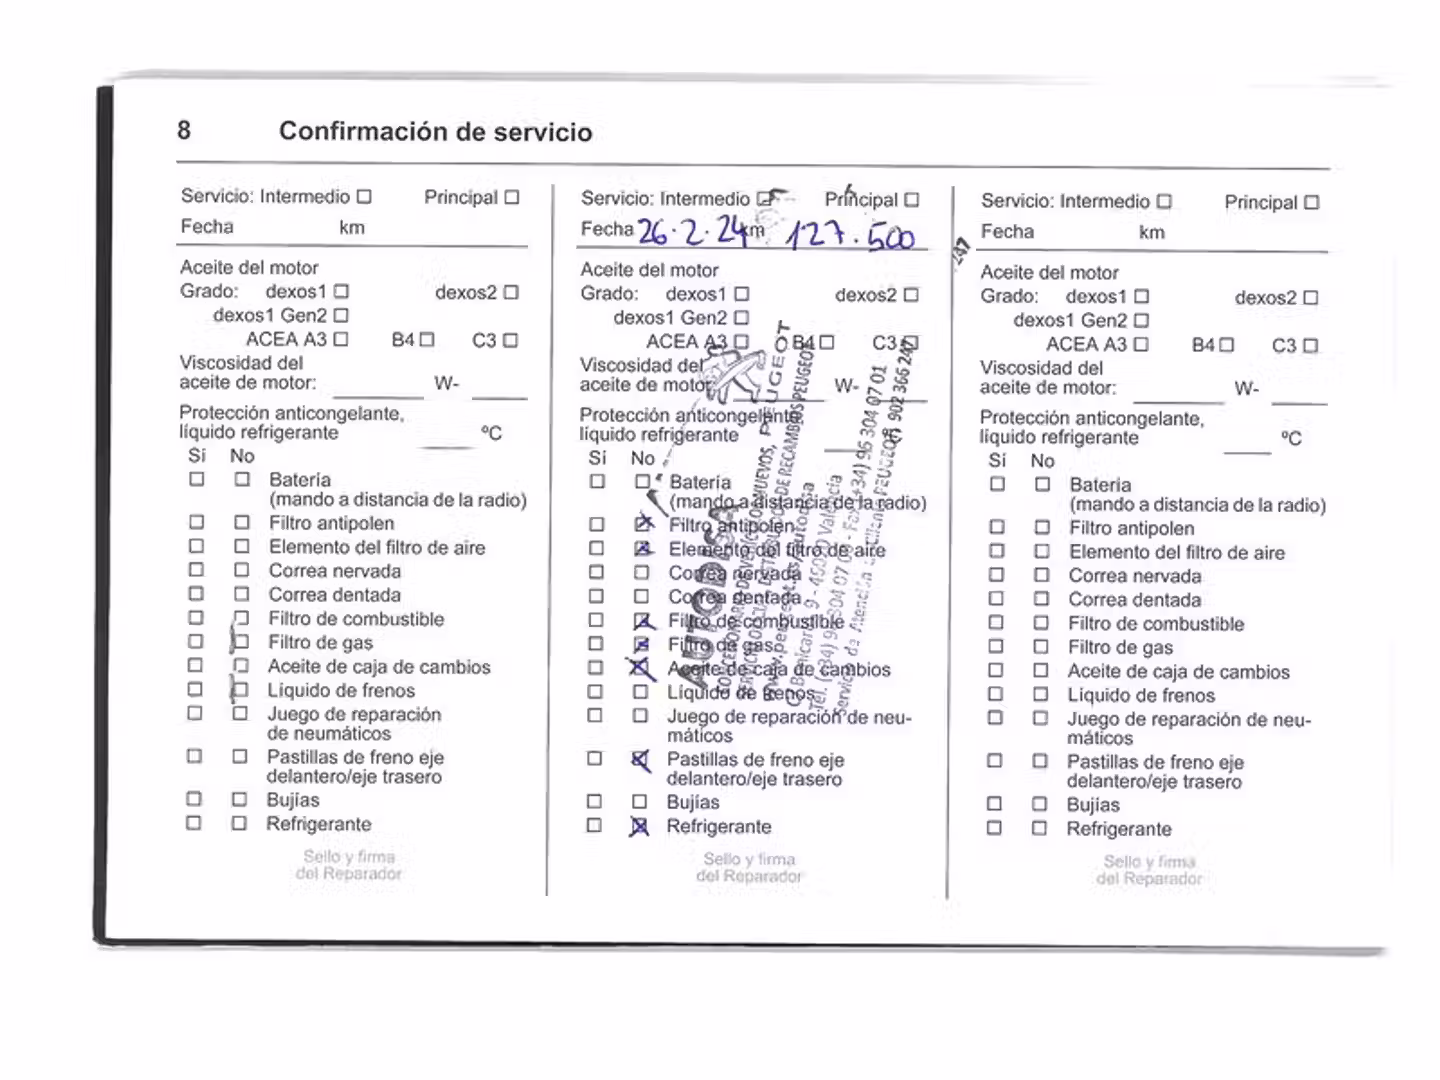 8 Confirmación de servicio
Servicio: Intermedio ☐ Principal ☐
Fecha km
Aceite del motor
Grado: dexos1 ☐ dexos2 ☐
dexos1 Gen2 ☐
ACEA A3 ☐ B4 ☐ C3 ☐
Viscosidad del
aceite de motor: W-
Protección anticongelante,
líquido refrigerante ºC
Sí No
☐ ☐ Batería
(mando a distancia de la radio)
☐ ☐ Filtro antipolen
☐ ☐ Elemento del filtro de aire
☐ ☐ Correa nervada
☐ ☐ Correa dentada
☐ ☐ Filtro de combustible
☐ ☐ Filtro de gas
☐ ☐ Aceite de caja de cambios
☐ ☐ Líquido de frenos
☐ ☐ Juego de reparación
de neumáticos
☐ ☐ Pastillas de freno eje
delantero/eje trasero
☐ ☐ Bujías
☐ ☐ Refrigerante
Sello y firma
del Reparador
Servicio: Intermedio ☐ Principal ☐
Fecha 26.2.24 km 127.500
Aceite del motor
Grado: dexos1 ☐ dexos2 ☐
dexos1 Gen2 ☐
ACEA A3 ☐ B4 ☐ C3 ☐
Viscosidad del
aceite de motor: W-
Protección anticongelante,
líquido refrigerante
Sí No
☐ ☐ Batería
(mando a distancia de la radio)
☐ ☒ Filtro antipolen
☐ ☒ Elemento del filtro de aire
☐ ☐ Correa nervada
☐ ☐ Correa dentada
☐ ☒ Filtro de combustible
☐ ☒ Filtro de gas
☐ ☒ Aceite de caja de cambios
☐ ☐ Líquido de frenos
☐ ☐ Juego de reparación de neu-
máticos
☐ ☒ Pastillas de freno eje
delantero/eje trasero
☐ ☐ Bujías
☐ ☒ Refrigerante
Sello y firma
del Reparador
AUTODISA
PEUGEOT
DE RECAMBIOS PEUGEOT
Valencia
304 07 01
902 366 247
247
Servicio: Intermedio ☐ Principal ☐
Fecha km
Aceite del motor
Grado: dexos1 ☐ dexos2 ☐
dexos1 Gen2 ☐
ACEA A3 ☐ B4 ☐ C3 ☐
Viscosidad del
aceite de motor: W-
Protección anticongelante,
líquido refrigerante ºC
Sí No
☐ ☐ Batería
(mando a distancia de la radio)
☐ ☐ Filtro antipolen
☐ ☐ Elemento del filtro de aire
☐ ☐ Correa nervada
☐ ☐ Correa dentada
☐ ☐ Filtro de combustible
☐ ☐ Filtro de gas
☐ ☐ Aceite de caja de cambios
☐ ☐ Líquido de frenos
☐ ☐ Juego de reparación de neu-
máticos
☐ ☐ Pastillas de freno eje
delantero/eje trasero
☐ ☐ Bujías
☐ ☐ Refrigerante
Sello y firma
del Reparador